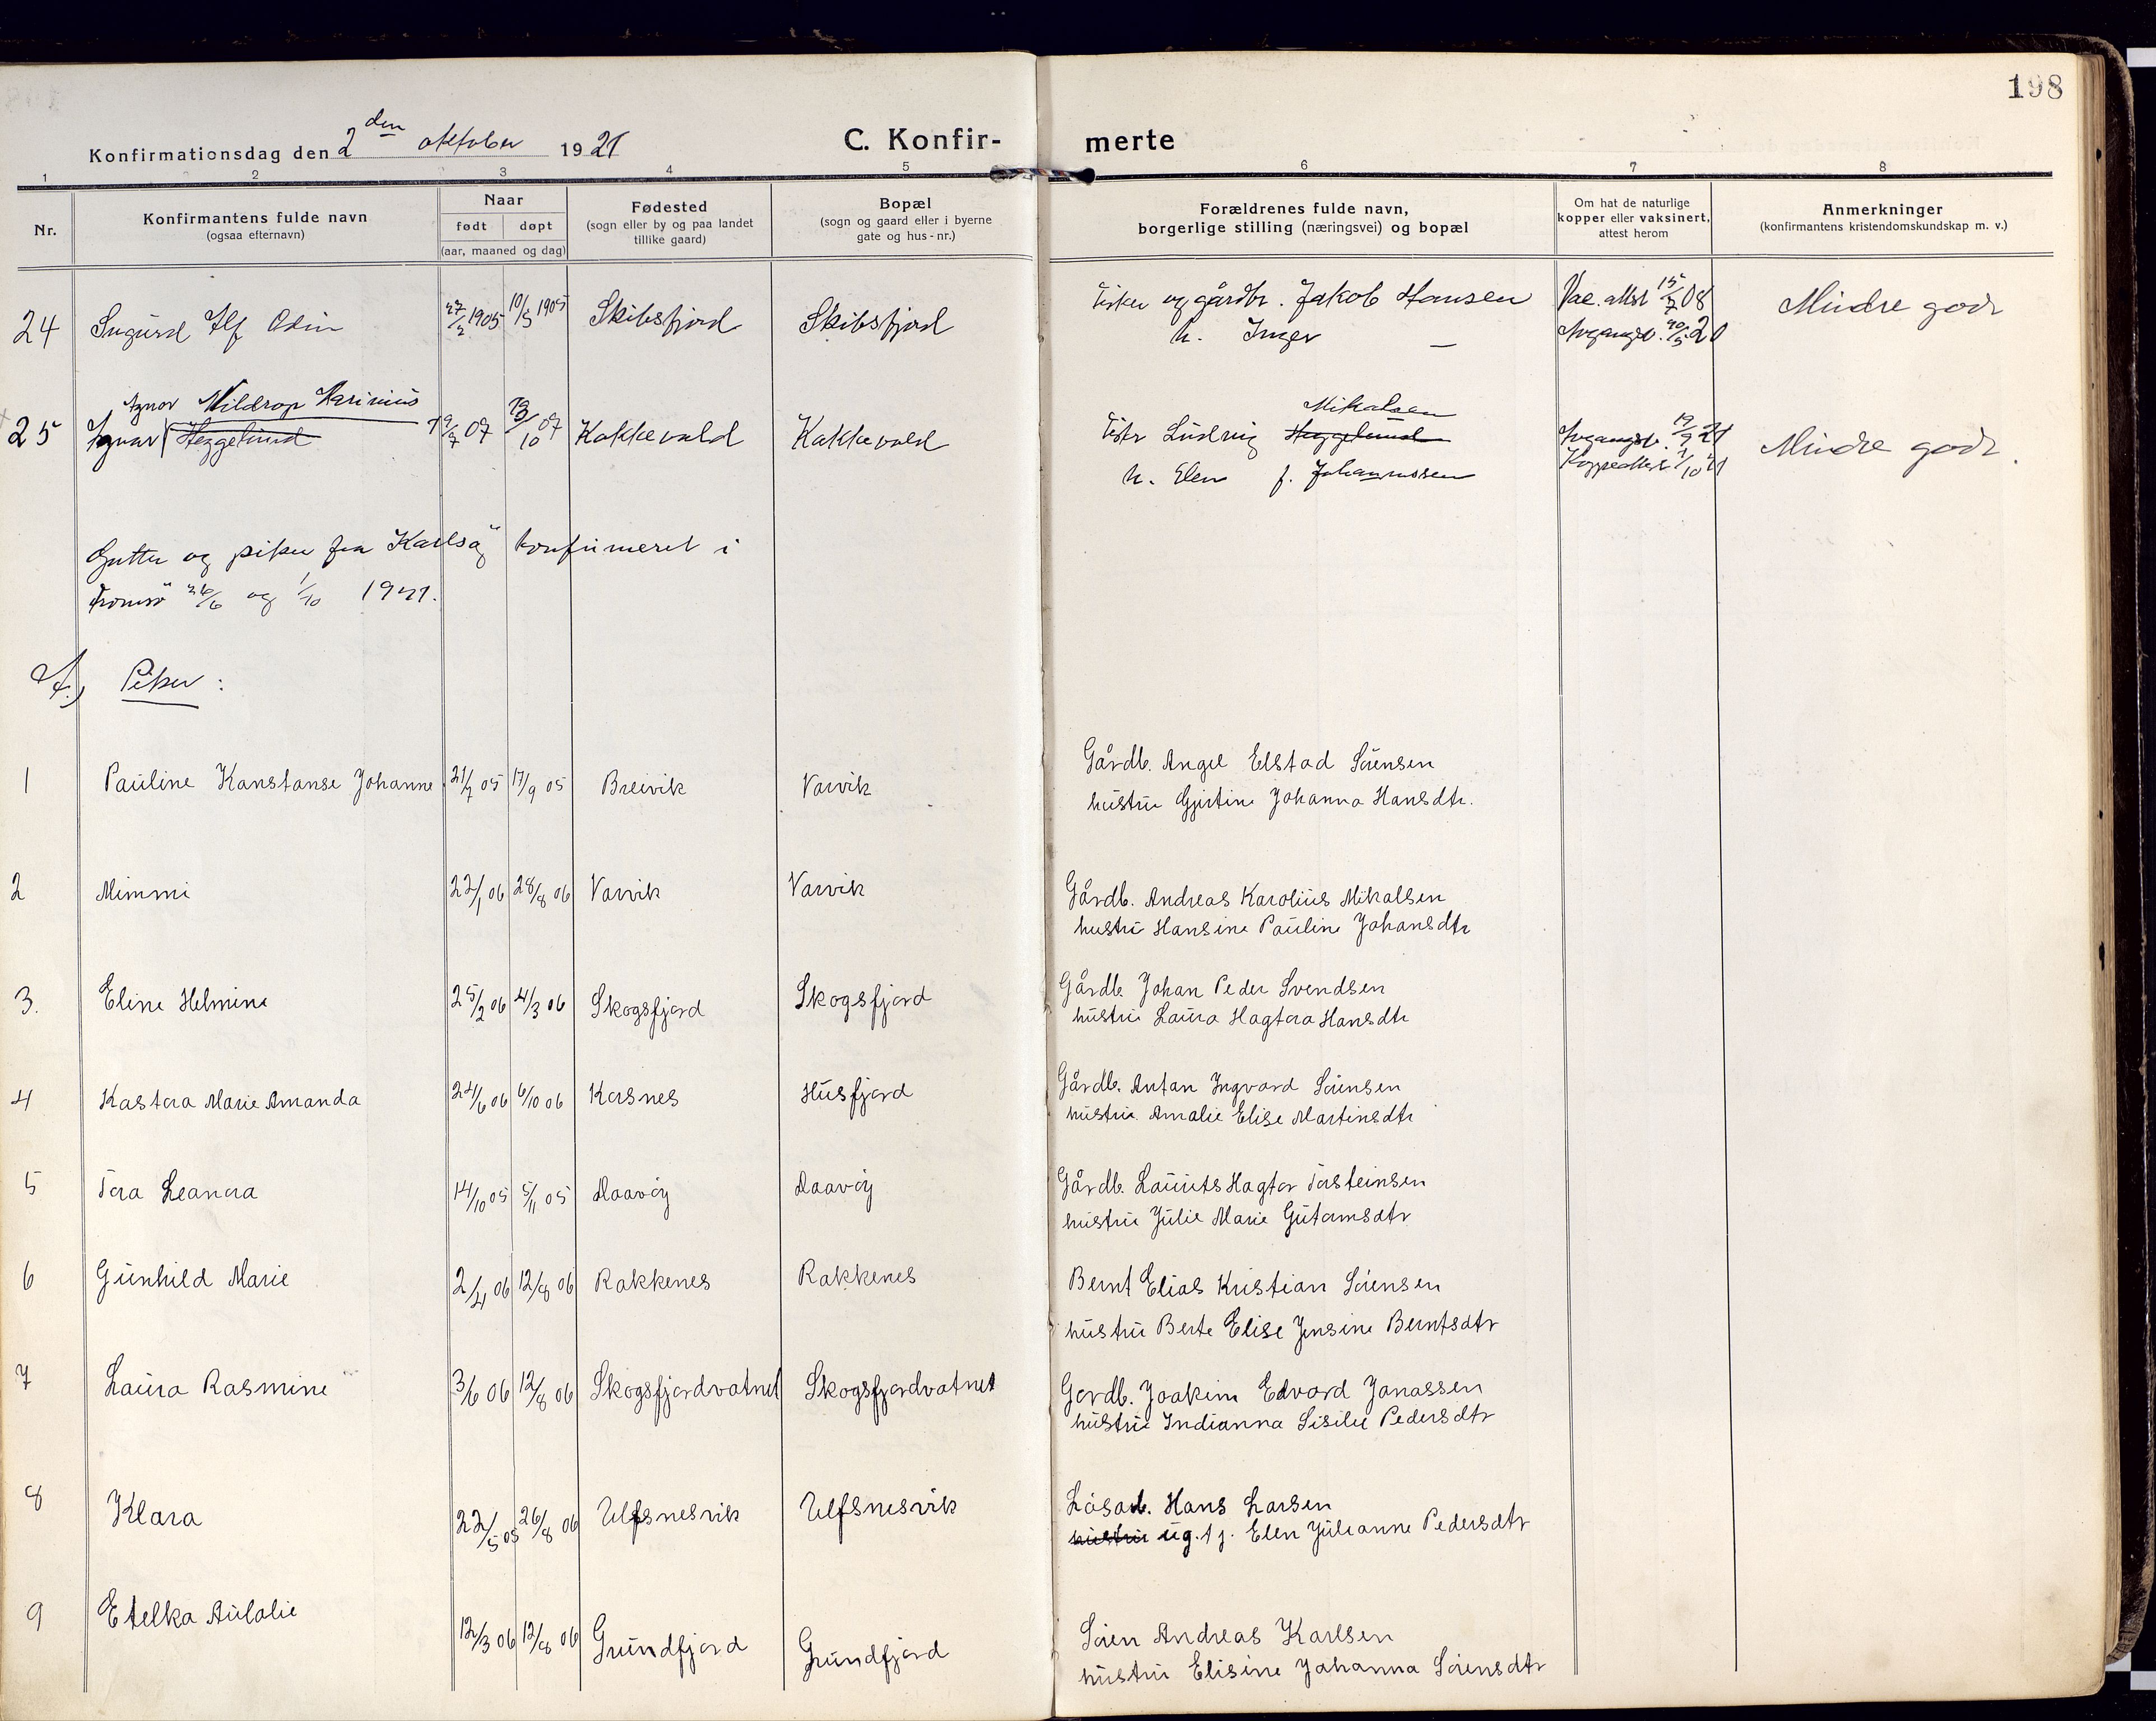 198
Konfirmationsdag den 2 den oktober 1921
C. Konfir-
merte
1 2 3 4 5 6 7 8
Nr.
Konfirmantens fulde navn
(ogsaa efternavn)
Naar
født døpt
(aar, maaned og dag)
Fødested
(sogn eller by og paa landet
tillike gaard)
Bopæl
(sogn og gaard eller i byerne
gate og hus-nr.)
Forældrenes fulde navn,
borgerlige stilling (næringsvei) og bopæl
Om hat de naturlige
kopper eller vaksinert,
attest herom
Anmerkninger
(konfirmantens kristendomskundskap m. v.)
24 Sigurd Alf Odin 1905 10/5 1905 Skibsfjord Skibsfjord
Fisker og gårdbr. Jakob Hansen
h. Inger —
Vac. attest 15/7 08
20
Mindre godt
Agnar Hildrop Marinius
25 Agnar Heggelund 07 10 07 Kakkevald Kakkevald
Mikalsen
Fisker Ludvig Heggelund
h. Elen f. Johannessen
19/9 21
Koppeattest 1/10 21
Mindre godt.
Gutter og piker fra Karlsö konfirmeret i
Tromsö 26/6 og 1/10 1921.
A.) Piker:
1 Pauline Konstanse Johanne 21/7 05 17/9 05 Breivik Vorvik
Gårdb. Angel Elstad Sörensen
hustru Gjertine Johanna Hansdtr.
2 Mimmi 22/1 06 28/8 06 Vorvik Vorvik
Gårdb. Andreas Karolius Mikalsen
hustru Hansine Pauline Johansdtr
3. Eline Helmine 25/2 06 4/3 06 Skogsfjord Skogsfjord
Gårdb. Johan Peder Svendsen
hustru Laura Hagtora Hansdtr
4 Kastora Marie Amanda 24/6 06 6/10 06 Korsnes Husfjord
Gårdb. Anton Ingvard Sörensen
hustru Amalie Elise Martinsdtr
5 Tora Leonora 14/10 05 5/11 05 Daavöy Daavöy
Gårdb. Laurits Hagtor Torsteinsen
hustru Julie Marie Gutormsdtr
6 Gunhild Marie 2/4 06 12/8 06 Rakkenes Rakkenes
Bernt Elias Kristian Sörensen
hustru Berte Elise Jensine Berntsdtr
7 Laura Rasmine 3/6 06 12/8 06 Skogsfjordvatnet Skogsfjordvatnet
Gordb. Joakim Edvard Jonassen
hustru Indianna Sisilie Pedersdtr
8 Klara 22/5 05 26/8 06 Ulfsnesvik Ulfsnesvik
Lösarb. Hans Larsen
hustru ug. tj. Elen Julianne Pedersdtr
9 Etelka Aulalie 12/3 06 12/8 06 Grundfjord Grundfjord
Sören Andreas Karlsen
hustru Elisine Johanna Sörensdtr